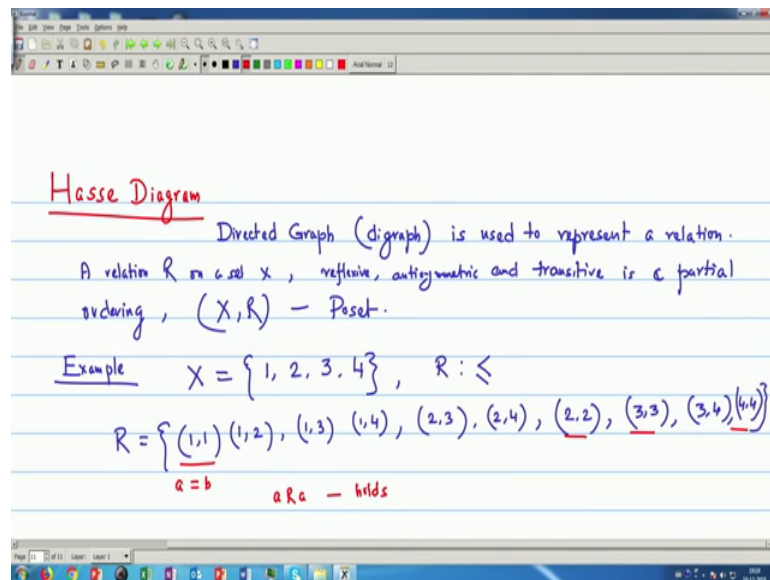 Journal
File Edit View Page Tools Options Help
Arial Normal 12
Hasse Diagram
Directed Graph (digraph) is used to represent a relation.
A relation R on a set X, reflexive, antisymmetric and transitive is a partial
ordering, (X, R) – Poset.
Example X = {1, 2, 3, 4}, R : ⩽
R = {(1,1) (1,2), (1,3) (1,4), (2,3), (2,4), (2,2), (3,3), (3,4), (4,4)}
a = b aRa – holds
Page 11 of 11 Layer: Layer 1